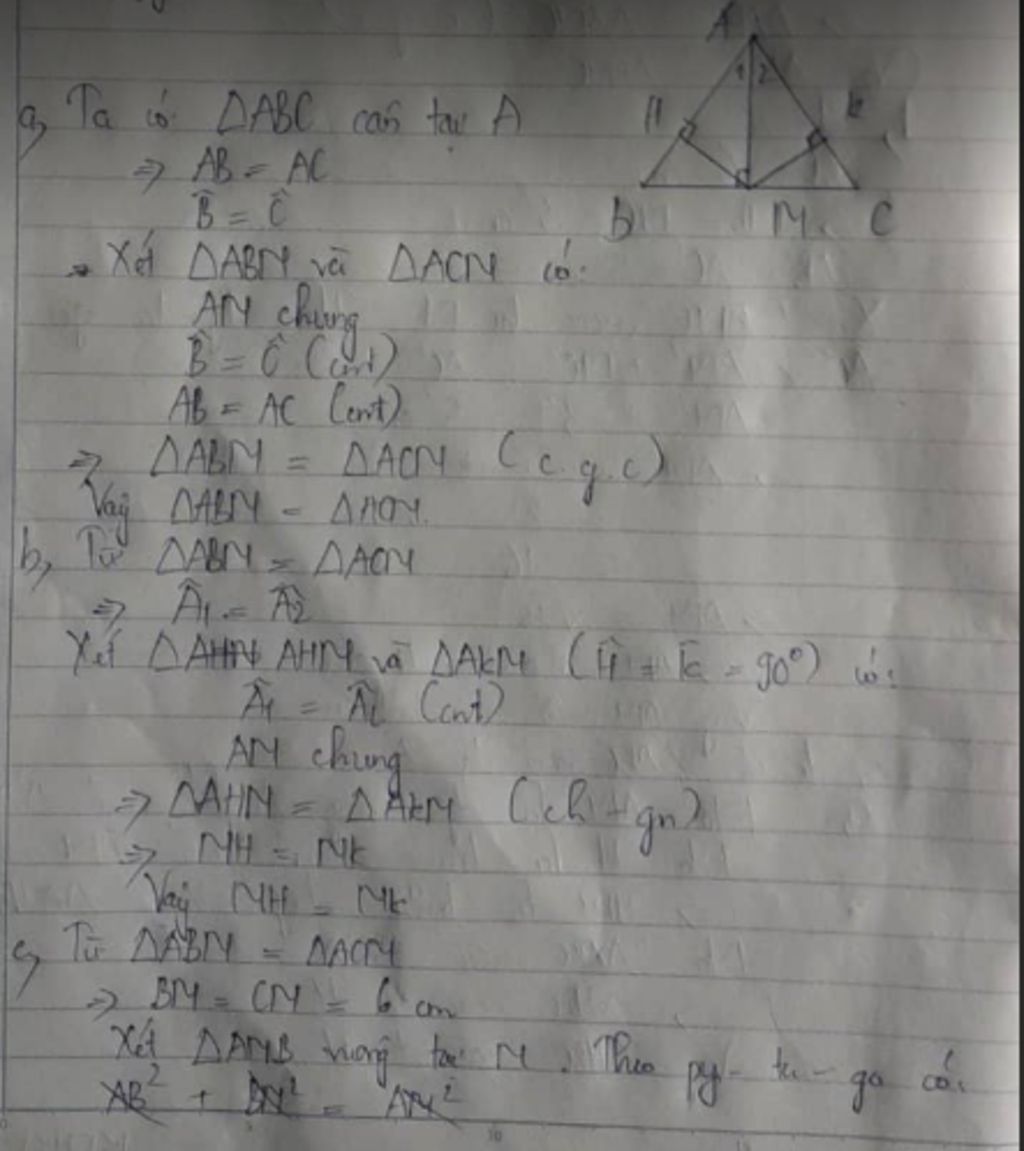 A
1 2
H
K
B
M
C
a, Ta có: ΔABC cân tại A
=> AB = AC
B̂ = Ĉ
Xét ΔABM và ΔACM có:
AM chung
B̂ = Ĉ (cmt)
AB = AC (cmt)
=> ΔABM = ΔACM (c.g.c)
Vậy ΔABM = ΔACM.
b, Từ ΔABM = ΔACM
=> Â1 = Â2
Xét ΔAHM AHM và ΔAKM (Ĥ = K̂ = 90°) có:
Â1 = Â2 (cmt)
AM chung
=> ΔAHM = ΔAKM (ch - gn)
=> MH = MK
Vậy MH = MK
c, Từ ΔABM = ΔACM
=> BM = CM = 6 cm
Xét ΔAMB vuông tại M. Theo py-ta-go có:
AB² + BM² = AM²